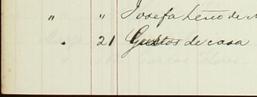 " " Josefa Leño de
" 21 Gustos de casa